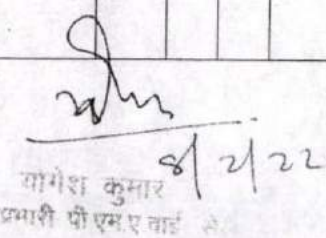 8/2/22
योगेश कुमार
प्रभारी पी एम ए वाई